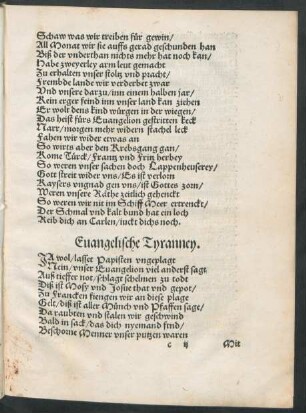 Schaw was wir treiben für gewin/
All Monat wir sie auffs gerad geschunden han
Biß der vnderthan nichts mehr hat noch kan/
Habe zweyerley arm leut gemacht
Zu erhalten vnser stoltz vnd pracht/
Frembde lande wir verderbet zwar
Vnd vnsere darzu/inn einem halben jar/
Kein erger feind inn vnser land kan ziehen
Er wolt dens kind würgen in der wiegen/
Das heist fürs Euangelion gestritten keck
Narr/morgen mehr widern stachel leck
Fahen wir wider etwas an
So wirts aber den Krebsgang gan/
Kome Türck/Frantz vnd Fritz herbey
So weren vnser sachen doch Lappenheuserey/
Gott streit wider vns/Es ist verlorn
Kaysers vngnad gen vns/ist Gottes zorn/
Weren vnsere Räthe zeitlich gehenckt
So weren wir nit im Schiff Meer ertrenckt/
Der Schmal vnd kalt bund hat ein loch
Reib dich an Carlen/juckt dichs noch.
Euangelische Tyranney.
JA wol/lasset Papisten vngeplagt
Nein/vnser Euangelion viel anderst sagt
Auß tieffer not/schlagt schelmen zu todt
Diß ist Mosy vnd Josue that vnd gepot/
Zu Francken fiengen wir an diese plage
Gelt/diß ist aller Münch vnd Pfaffen sage/
Da raubten vnd stalen wir geschwind
Bald in sack/das dich nyemand find/
Beschorne Menner vnser putzen waren
c ij Mit